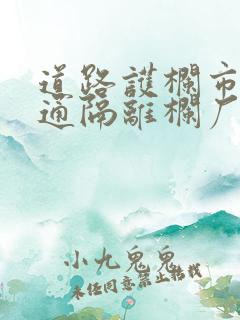 道路護欄市
通隔離欄厂
小九鬼鬼
未经同意禁止转载